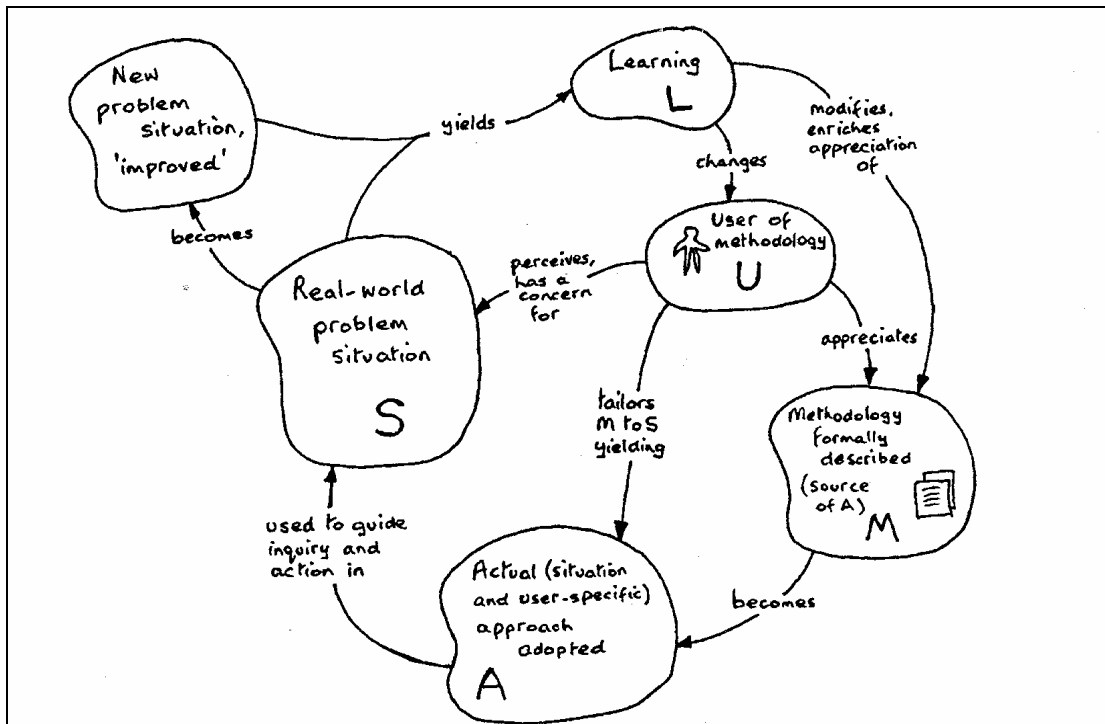 New
problem
situation,
'improved'
yields
Learning
L
modifies,
enriches
appreciation
of
changes
becomes
User of
methodology
U
perceives,
has a
concern
for
Real-world
problem
situation
S
appreciates
tailors
M to S
yielding
Methodology
formally
described
(source
of A)
M
used to guide
inquiry and
action in
Actual (situation
and user-specific)
approach
adopted
A
becomes